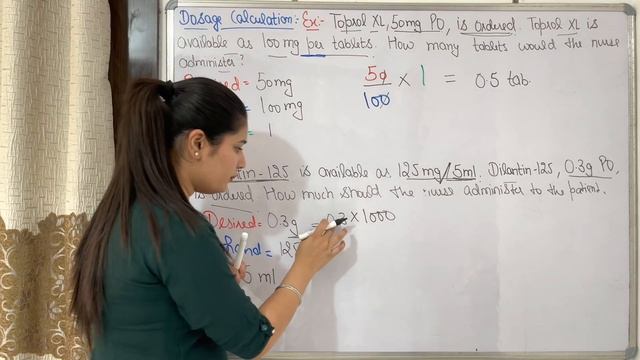 Dosage Calculation:- Ex:- Toprol XL, 50mg PO, is ordered. Toprol XL is
available as 100mg per tablets. How many tablets would the nurse
administer?
= 50mg
100mg
= 1
50/100 × 1 = 0.5 tab
125 is available as 125mg/5ml. Dilantin-125, 0.3g PO,
is ordered. How much should the nurse administer to the patient.
Desired = 0.3g = 0.3 × 1000
hand = 125
5 ml